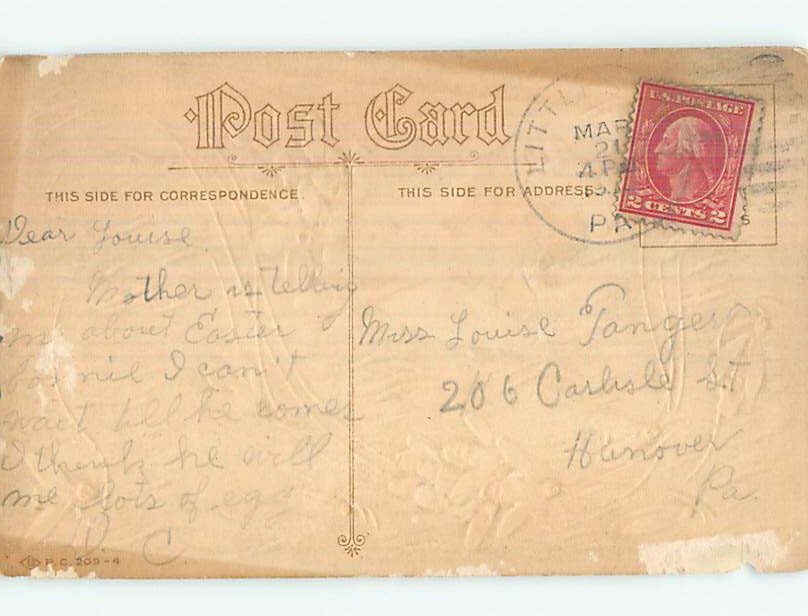 Post Card
THIS SIDE FOR CORRESPONDENCE.
THIS SIDE FOR ADDRESS
LITTL
MAR
21
4 P
PA
U.S. POSTAGE
2 CENTS 2
Dear Louise
Mother is telling
me about Easter
I can't
wait till he comes
I think he will
me lots of egg
C.
Miss Louise Tanger
206 Carlisle St
Hanover
Pa.
P.C. 209-4